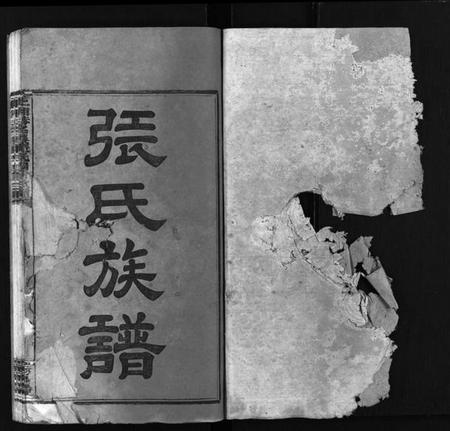 張氏族譜